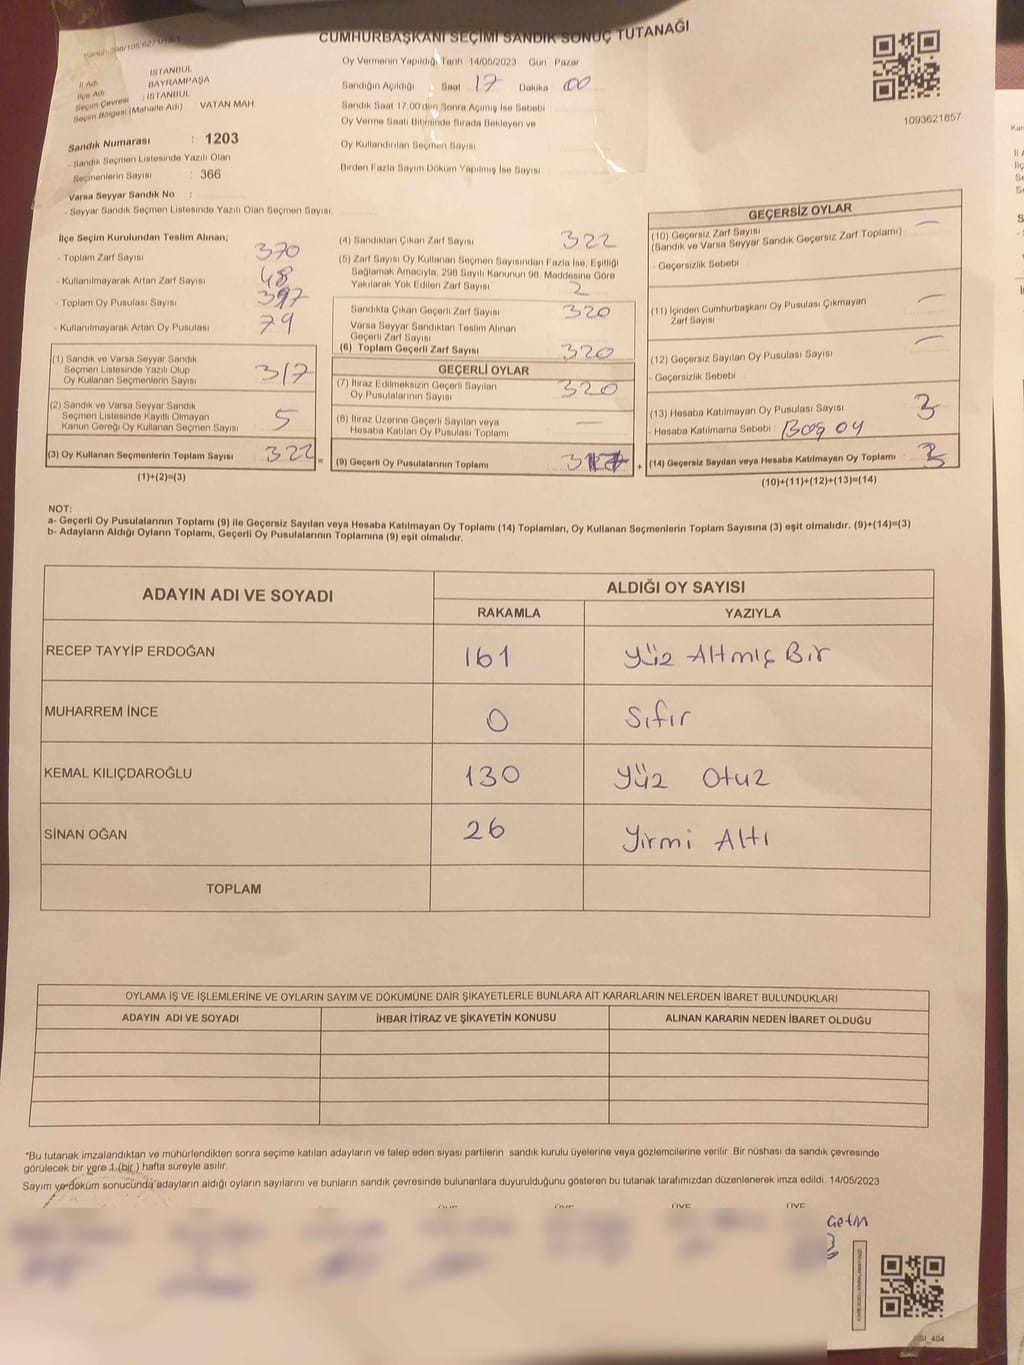 CUMHURBAŞKANI SEÇİMİ SANDIK SONUÇ TUTANAĞI
1093621857
İl Adı : İSTANBUL
İlçe Adı : BAYRAMPAŞA
Seçim Çevresi : İSTANBUL
Seçim Bölgesi (Mahalle Adı) VATAN MAH
Sandık Numarası : 1203
- Sandık Seçmen Listesinde Yazılı Olan
Seçmenlerin Sayısı : 366
Varsa Seyyar Sandık No :
- Seyyar Sandık Seçmen Listesinde Yazılı Olan Seçmen Sayısı:
Oy Vermenin Yapıldığı Tarih :14/05/2023 Gün Pazar
Sandığın Açıldığı Saat 17 Dakika 00
Sandık Saat 17.00'den Sonra Açımış İse Sebebi
Oy Verme Saati Bitiminde Sırada Bekleyen ve
Oy Kullandırılan Seçmen Sayısı
Birden Fazla Sayım Döküm Yapılmış İse Sayısı
İlçe Seçim Kurulundan Teslim Alınan;
- Toplam Zarf Sayısı 370
- Kullanılmayarak Artan Zarf Sayısı 48
- Toplam Oy Pusulası Sayısı 397
- Kullanılmayarak Artan Oy Pusulası 79
(1) Sandık ve Varsa Seyyar Sandık
Seçmen Listesinde Yazılı Olup
Oy Kullanan Seçmenlerin Sayısı 317
(2) Sandık ve Varsa Seyyar Sandık
Seçmen Listesinde Kayıtlı Olmayan
Kanun Gereği Oy Kullanan Seçmen Sayısı 5
(3) Oy Kullanan Seçmenlerin Toplam Sayısı 322 =
(1)+(2)=(3)
(4) Sandıktan Çıkan Zarf Sayısı 322
(5) Zarf Sayısı Oy Kullanan Seçmen Sayısından Fazla İse, Eşitliği
Sağlamak Amacıyla, 298 Sayılı Kanunun 98. Maddesine Göre
Yakılarak Yok Edilen Zarf Sayısı 2
Sandıkta Çıkan Geçerli Zarf Sayısı 320
Varsa Seyyar Sandıktan Teslim Alınan
Geçerli Zarf Sayısı
(6) Toplam Geçerli Zarf Sayısı 320
GEÇERLİ OYLAR
(7) İtiraz Edilmeksizin Geçerli Sayılan
Oy Pusulalarının Sayısı 320
(8) İtiraz Üzerine Geçerli Sayılan veya
Hesaba Katılan Oy Pusulası Toplamı —
(9) Geçerli Oy Pusulalarının Toplamı 317 +
GEÇERSİZ OYLAR
(10) Geçersiz Zarf Sayısı —
(Sandık ve Varsa Seyyar Sandık Geçersiz Zarf Toplamı)
- Geçersizlik Sebebi
(11) İçinden Cumhurbaşkanı Oy Pusulası Çıkmayan —
Zarf Sayısı
(12) Geçersiz Sayılan Oy Pusulası Sayısı —
- Geçersizlik Sebebi
(13) Hesaba Katılmayan Oy Pusulası Sayısı 3
- Hesaba Katılmama Sebebi Boş oy
(14) Geçersiz Sayılan veya Hesaba Katılmayan Oy Toplamı : 3
(10)+(11)+(12)+(13)=(14)
NOT:
a- Geçerli Oy Pusulalarının Toplamı (9) ile Geçersiz Sayılan veya Hesaba Katılmayan Oy Toplamı (14) Toplamları, Oy Kullanan Seçmenlerin Toplam Sayısına (3) eşit olmalıdır. (9)+(14)=(3)
b- Adayların Aldığı Oyların Toplamı, Geçerli Oy Pusulalarının Toplamına (9) eşit olmalıdır.
ADAYIN ADI VE SOYADI
ALDIĞI OY SAYISI
RAKAMLA YAZIYLA
RECEP TAYYİP ERDOĞAN 161 Yüz Altmış Bir
MUHARREM İNCE 0 Sıfır
KEMAL KILIÇDAROĞLU 130 Yüz Otuz
SİNAN OĞAN 26 Yirmi Altı
TOPLAM
OYLAMA İŞ VE İŞLEMLERİNE VE OYLARIN SAYIM VE DÖKÜMÜNE DAİR ŞİKAYETLERLE BUNLARA AİT KARARLARIN NELERDEN İBARET BULUNDUKLARI
ADAYIN ADI VE SOYADI İHBAR İTİRAZ VE ŞİKAYETİN KONUSU ALINAN KARARIN NEDEN İBARET OLDUĞU
*Bu tutanak imzalandıktan ve mühürlendikten sonra seçime katılan adayların ve talep eden siyasi partilerin sandık kurulu üyelerine veya gözlemcilerine verilir .Bir nüshası da sandık çevresinde
görülecek bir yere 1 (bir ) hafta süreyle asılır.
Sayım ve döküm sonucunda adayların aldığı oyların sayılarını ve bunların sandık çevresinde bulunanlara duyurulduğunu gösteren bu tutanak tarafımızdan düzenlenerek imza edildi. 14/05/2023
ÜYE ÜYE ÜYE ÜYE